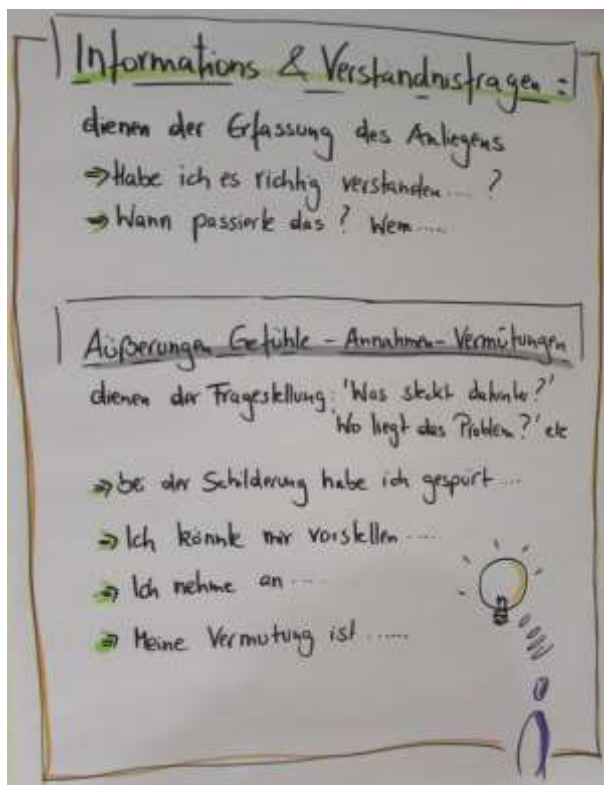 Informations & Verständnisfragen :
dienen der Erfassung des Anliegens
⇒ Habe ich es richtig verstanden.... ?
⇒ Wann passierte das ? Wem.....
Äußerungen Gefühle - Annahmen - Vermutungen
dienen der Fragestellung: 'Was steckt dahinter?'
'Wo liegt das Problem?' etc
⇒ bei der Schilderung habe ich gespürt ...
⇒ Ich könnte mir vorstellen ....
⇒ Ich nehme an ....
⇒ Meine Vermutung ist ......